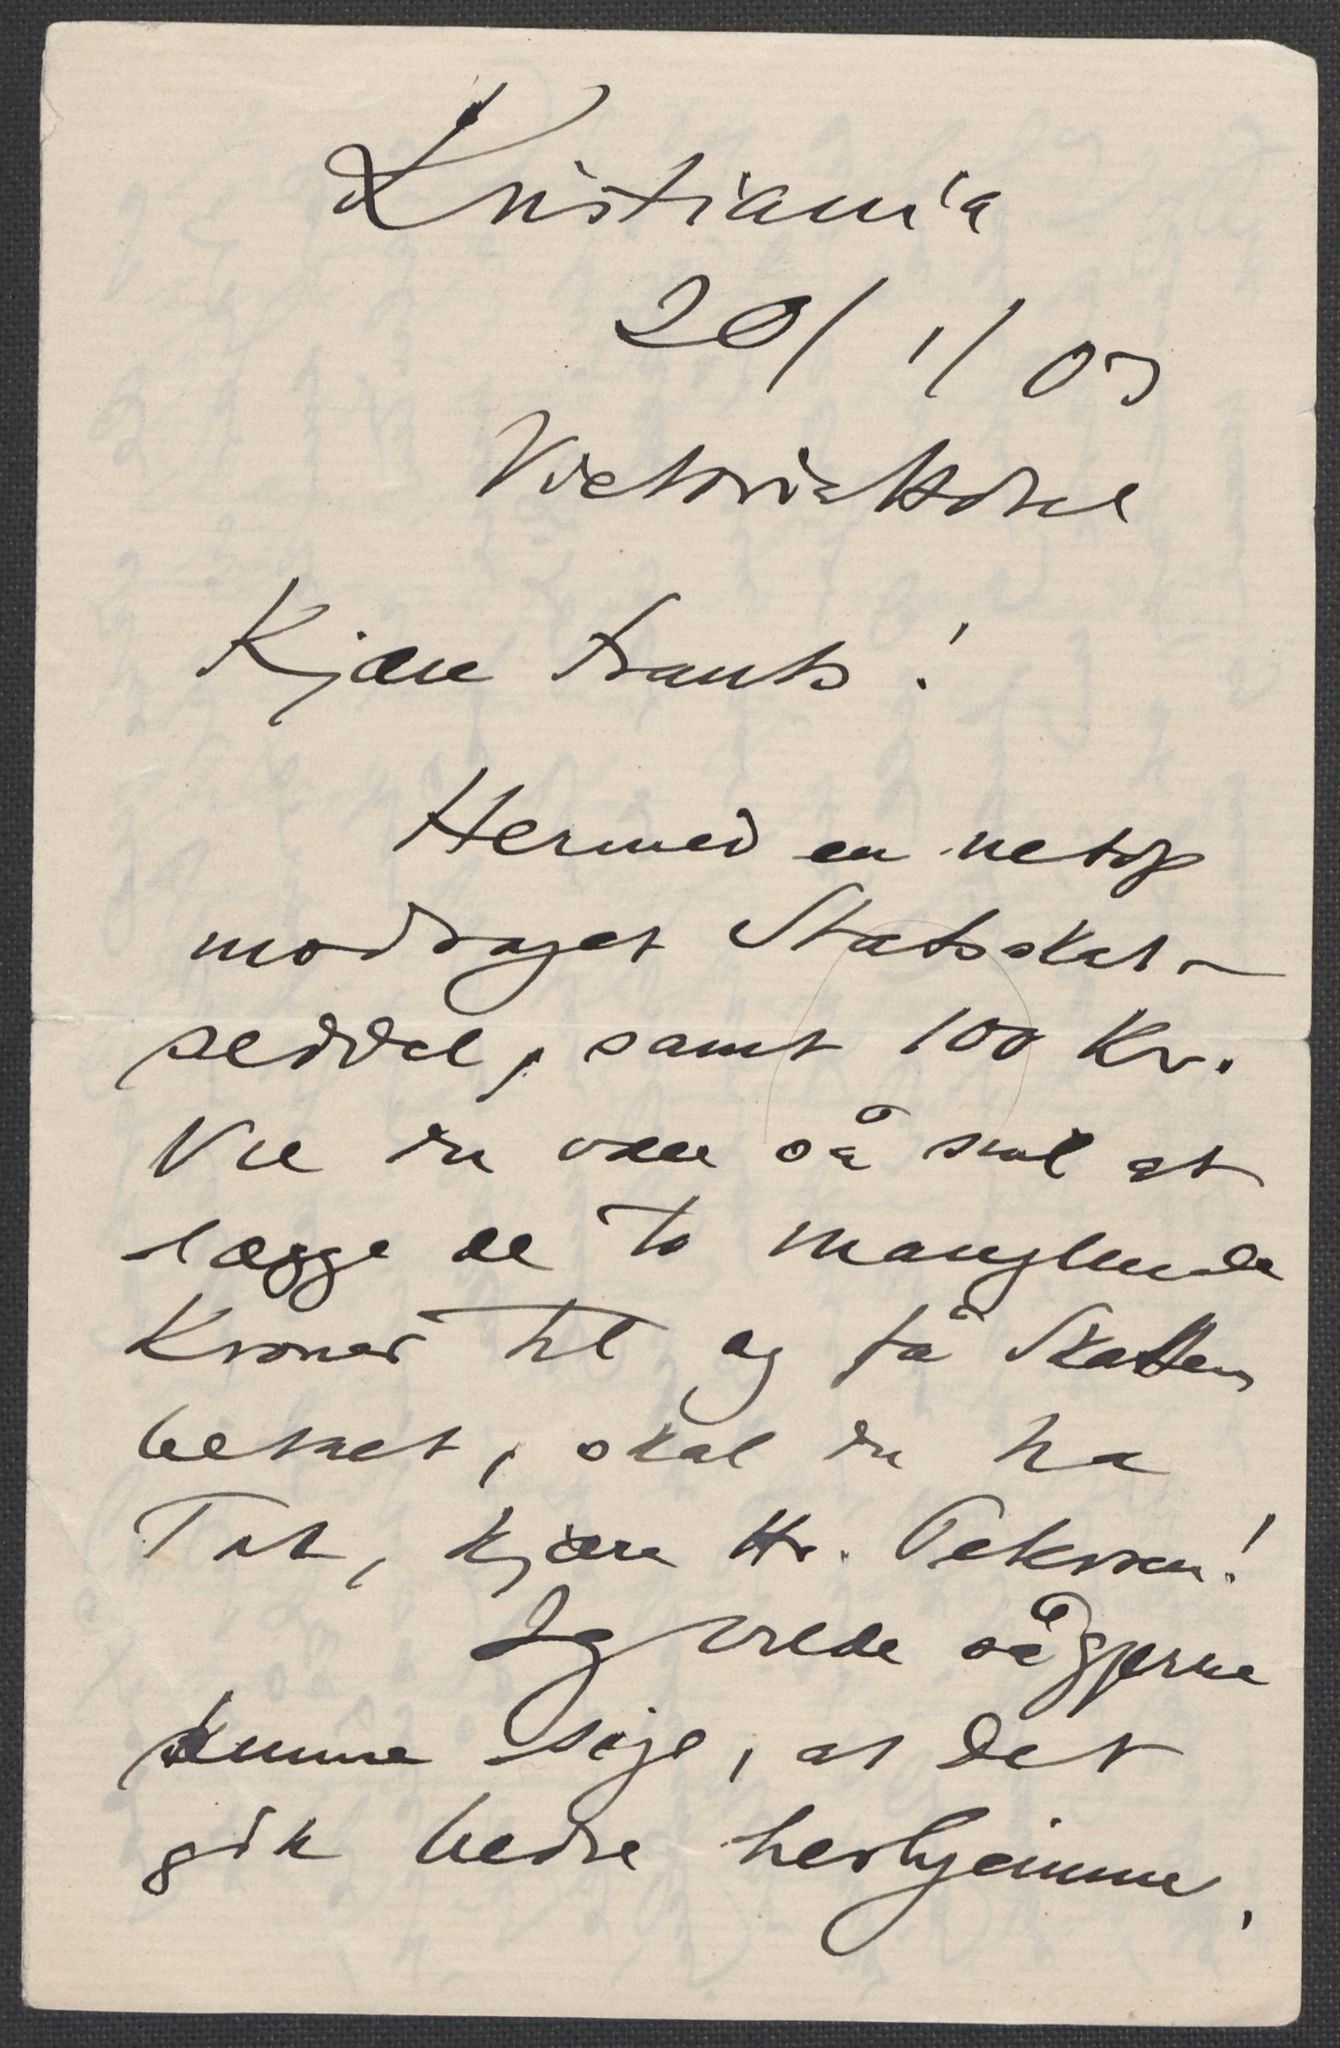 Kristiania
20/1/03
Victoria Hotel
Kjære Frants!
Hermed en netop
modtaget Statsskat-
seddel, samt 100 Kr.
Vil du være så snil at
lægge de to manglende
Kroner til og få Skatten
betalt, skal du ha
Tak, kjære Hr. Petersen!
Jeg vilde så gjerne
kunne sige, at det
gik bedre herhjemme,